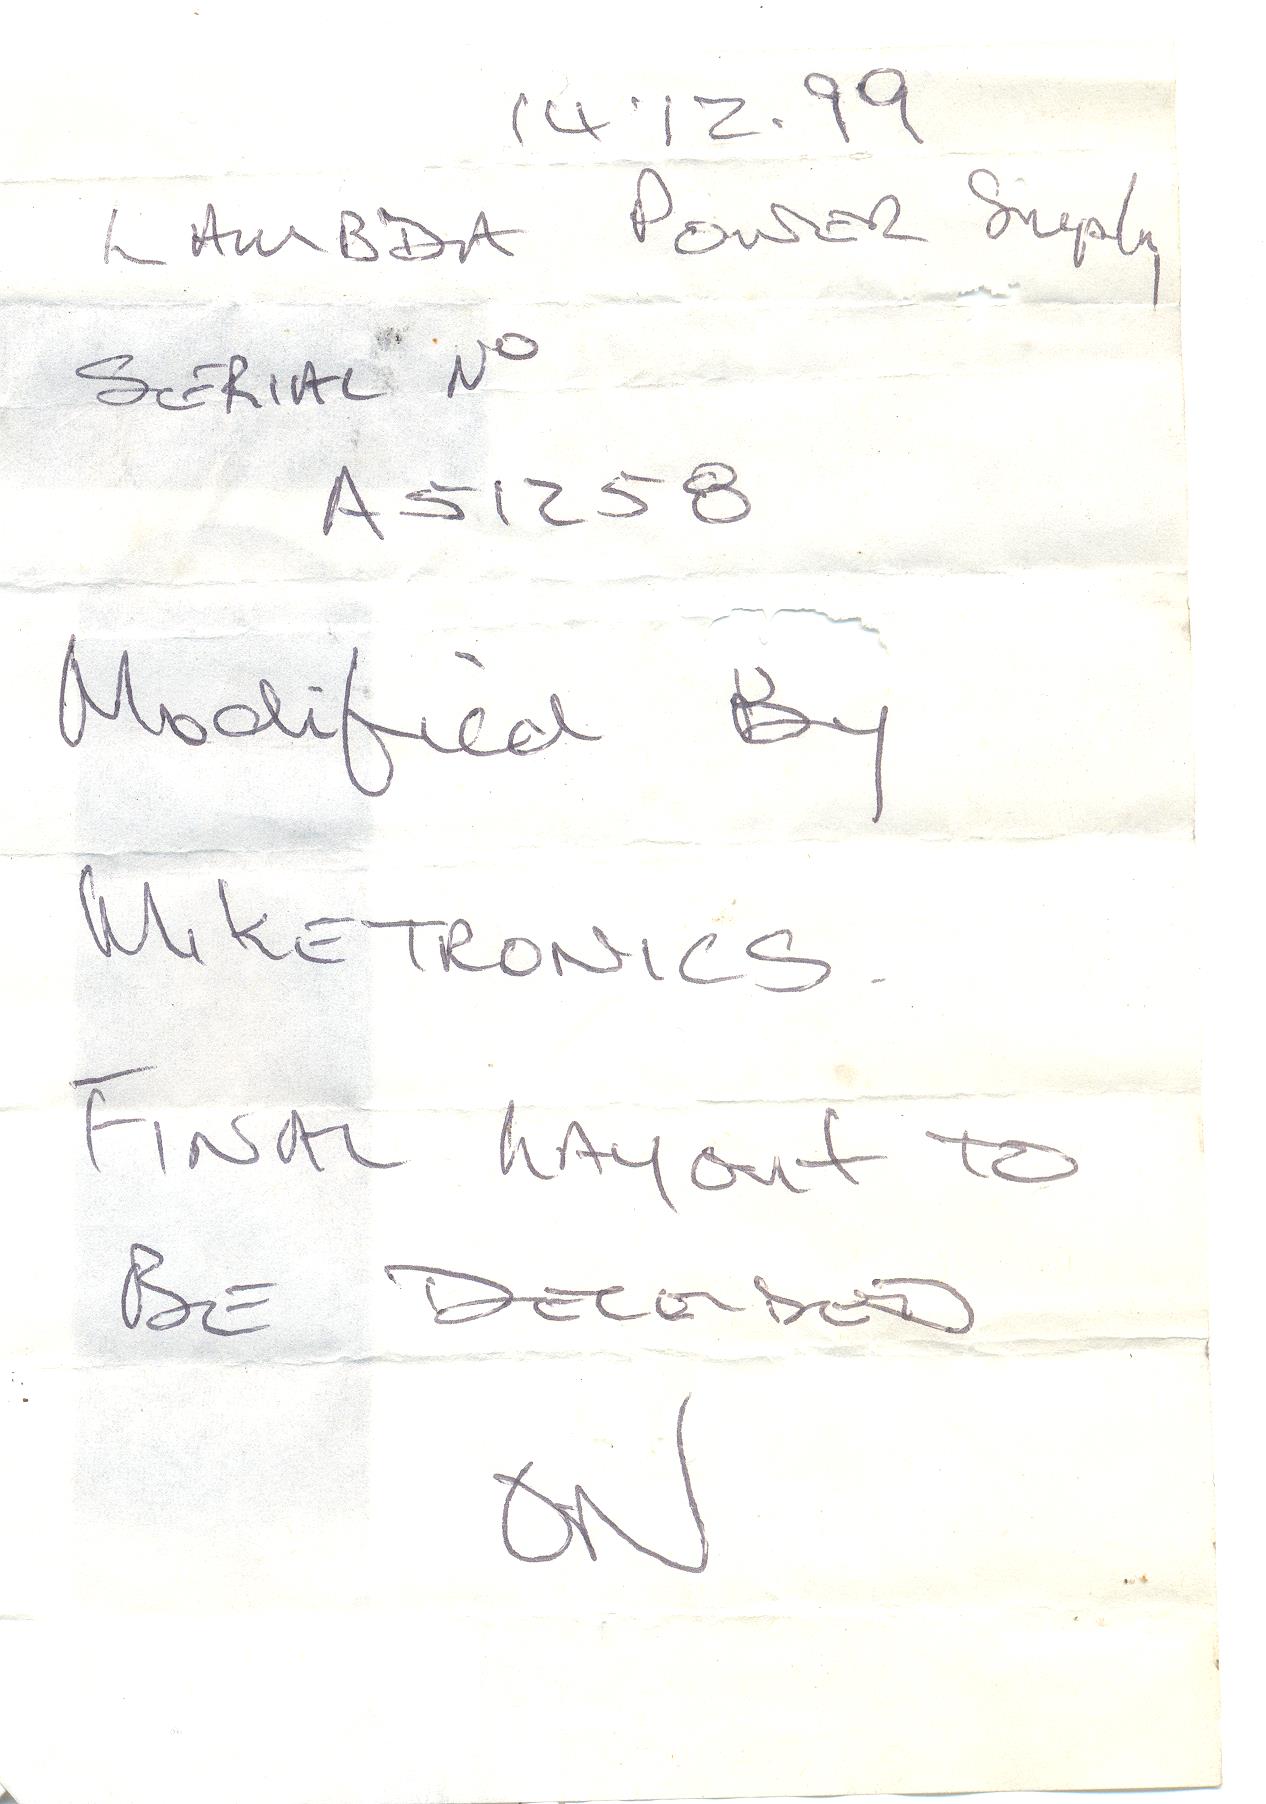 14.12.99
LAMBDA POWER Supply
SERIAL No
A51258
Modified By
MIKETRONICS.
FINAL LAYOUT TO
BE DECIDED
ON